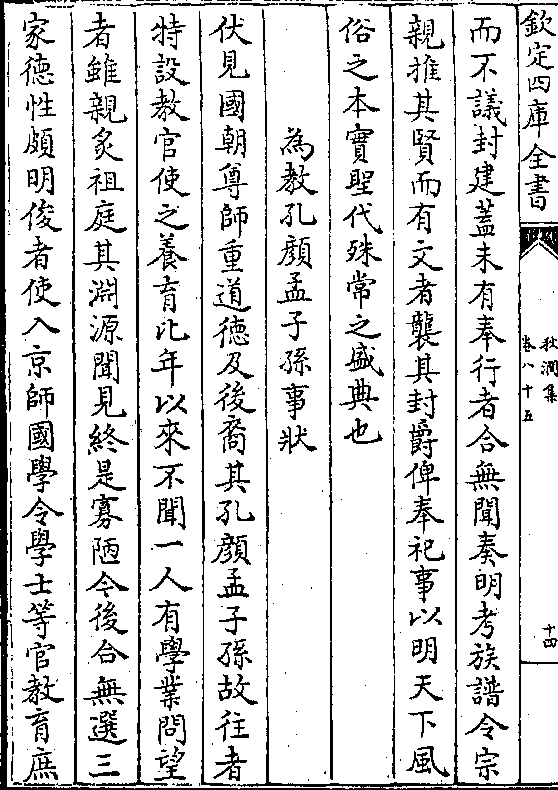 欽定四庫全書
秋澗集
卷八十五
十四
而不議封建蓋未有奉行者合無聞奏明考族譜令宗
親推其賢而有文者襲其封爵俾奉祀事以明天下風
俗之本實聖代殊常之盛典也
為教孔顔孟子孫事狀
伏見國朝尊師重道德及後裔其孔顔孟子孫故往者
特設教官使之養育比年以來不聞一人有學業問望
者雖親炙祖庭其淵源聞見終是寡陋今後合無選三
家德性頗明俊者使入京師國學令學士等官教育庶